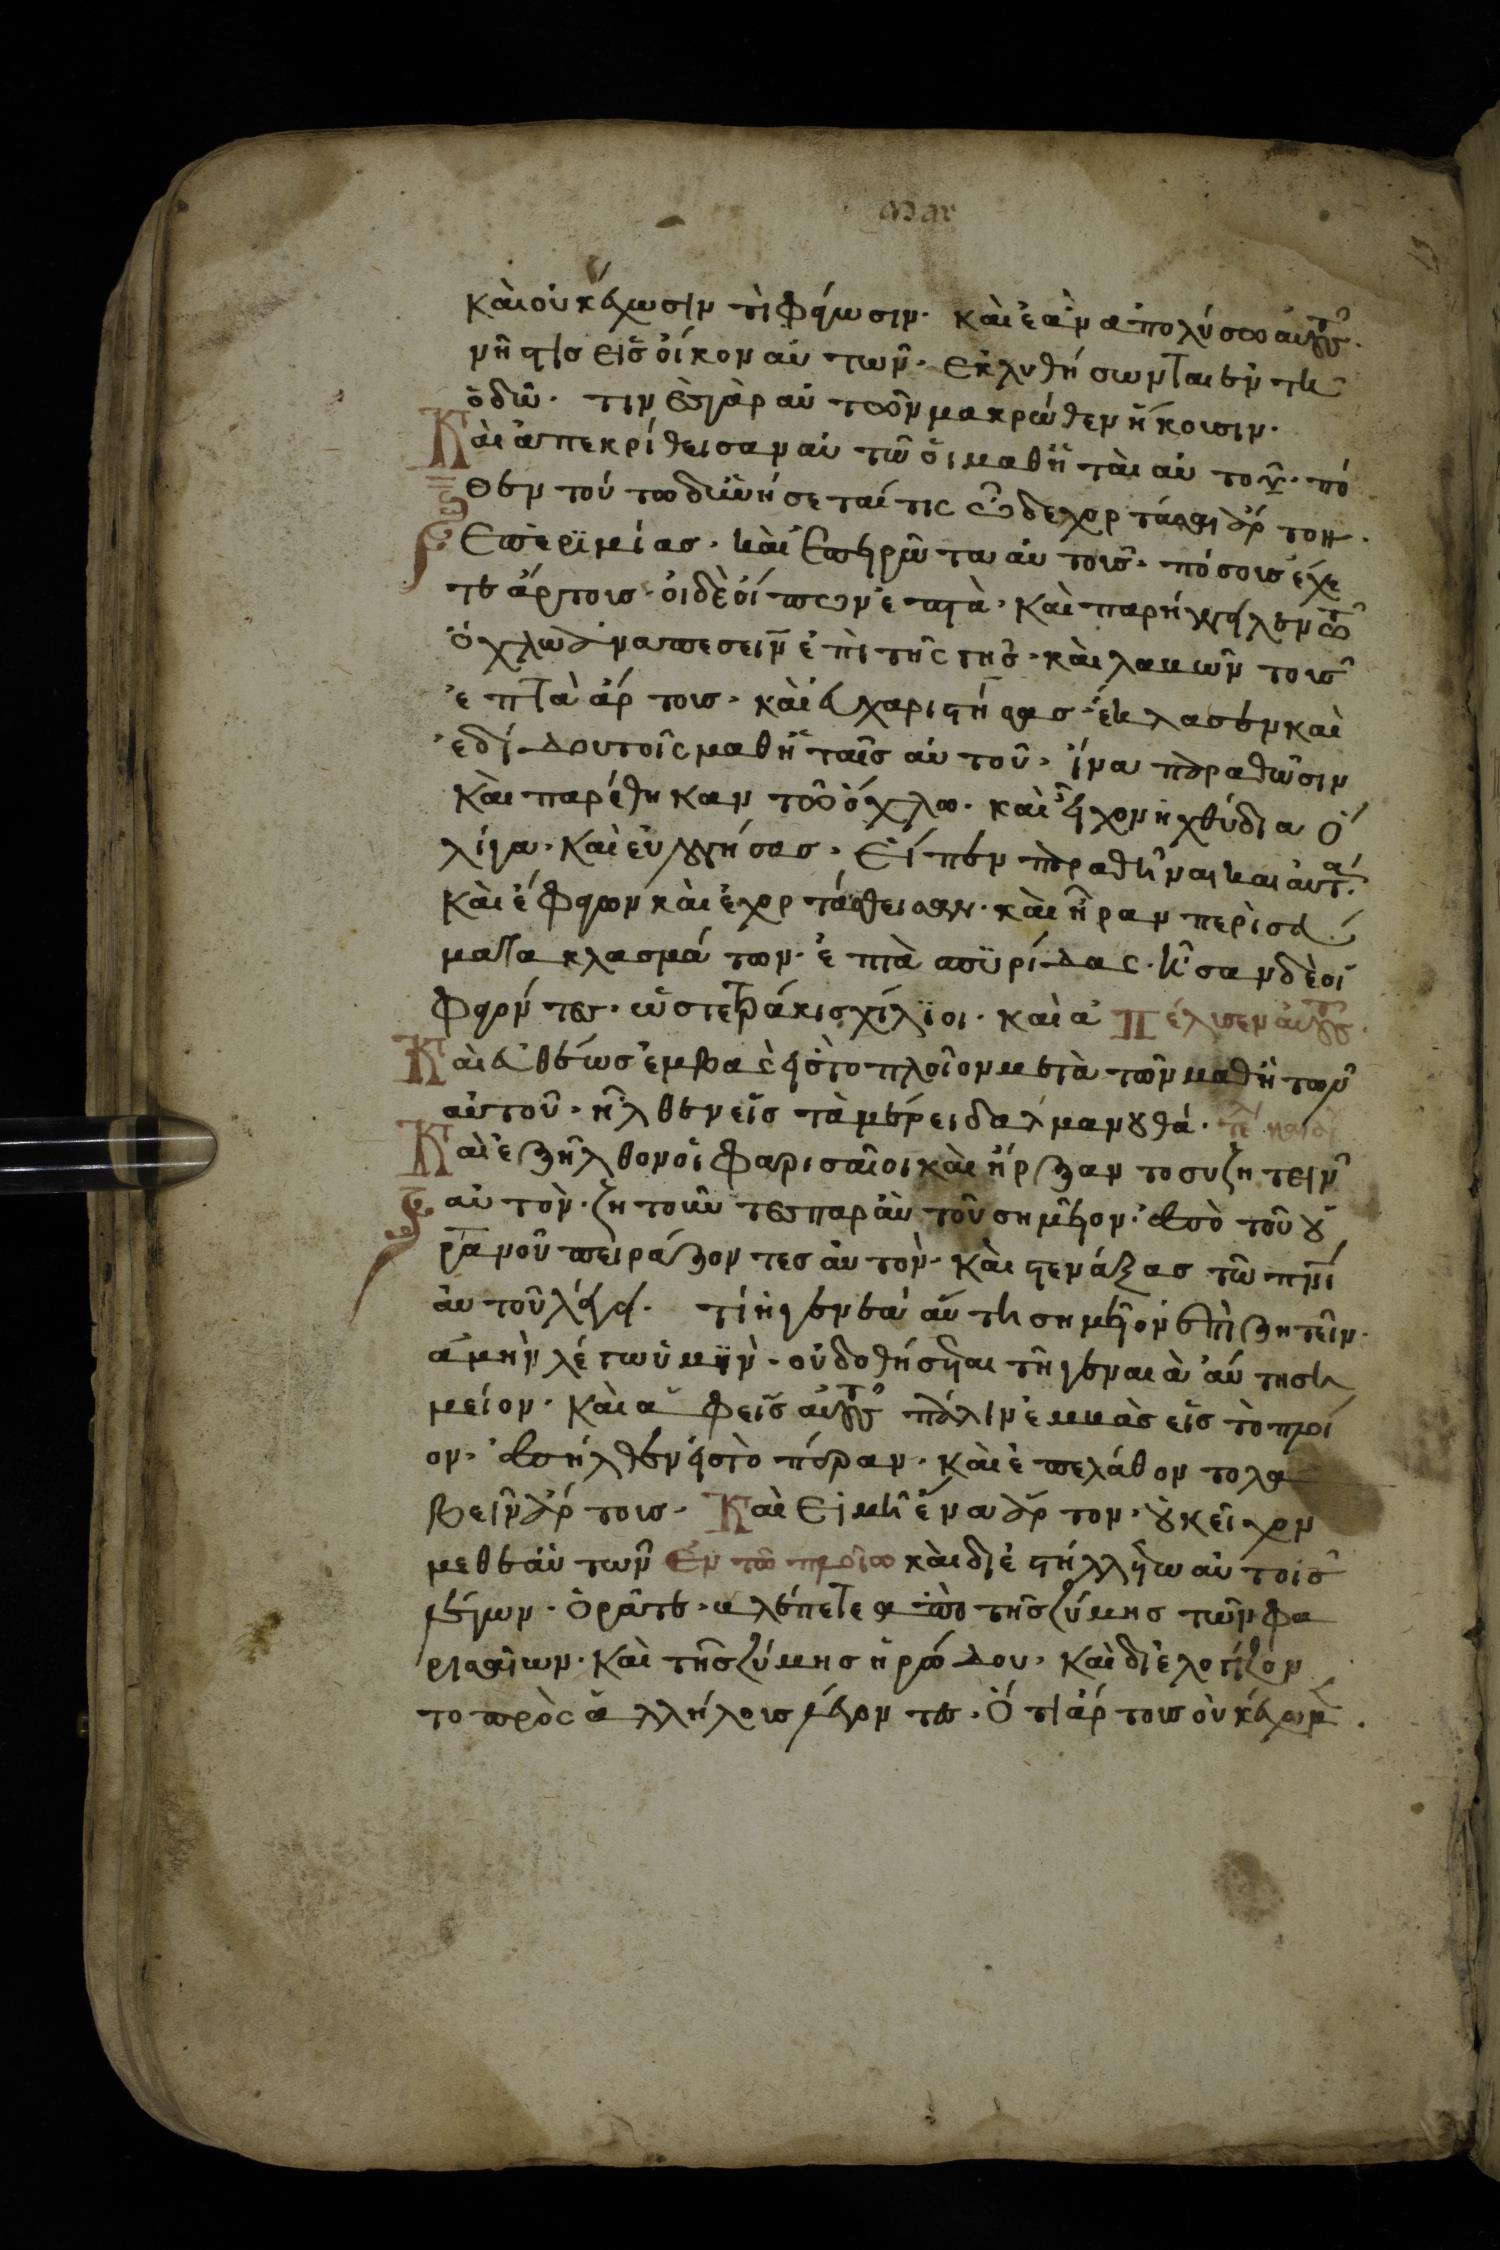 Mar
καὶ οὐκ ἔχωσιν τὶ φάγωσιν· καὶ ἐὰν ἀπολύσω αὐτοὺς
νῆστις εἰς οἶκον αὐτῶν· ἐκλυθήσωνται ἐν τῆ
ὁδῶ· τινὲς γὰρ αὐτῶν μακρώθεν ἥκουσιν·
Καὶ ἀπεκρίθεισαν αὐτῶ οἱ μαθηταὶ αὐτοῦ· πό
θεν τούτω δυνήσεταί τις ὧδε χορτάσαι ἄρτον·
ἐπ' ἐρϊμίας· καὶ ἐπηρῶτα αὐτοὺς· πόσους ἔχε
τε ἄρτους· οἱ δὲ εἶπων ἑπτὰ· καὶ παρήγγειλεν τῶ
ὄχλω ἀναπεσεῖν ἐπὶ τῆς γῆς· καὶ λαβὼν τοὺς
ἑπτὰ ἄρτους· καὶ εὐχαριστήσας· ἔκλασεν καὶ
ἐδίδου τοῖς μαθηταῖς αὐτοῦ· ἵνα παραθῶσιν
καὶ παρέθηκαν τῶ ὄχλω· καὶ εἶχον ἠχθύδια ὀ
λίγα· καὶ εὐλογήσας· εἶπεν παραθῆναι καὶ αὐτά·
καὶ ἔφαγον καὶ ἐχορτάσθεισαν· καὶ ἦραν περισεύ
ματα κλασμάτων· ἑπτὰ σπϋρίδας· ἦσαν δὲ οἱ
φαγόντες· ὡς τετράκισχίλϊοι· καὶ ἀπέλυσεν αὐτοὺς·
Καὶ εὐθέως ἐμβὰς εἰς τὸ πλοῖον μετὰ τῶν μαθητῶν
αὐτοῦ· ἦλθεν εἰς τὰ μέρει δαλμανουθά·
Καὶ ἐξῆλθον οἱ φαρισαῖοι καὶ ἤρξαντο συζητεῖν
αὐτὸν· ζητοῦντες παρ' αὐτοῦ σημεῖον· ἀπὸ τοῦ οὐ
ρανοῦ πειράζοντες αὐτὸν· καὶ στενάξας τῶ πνι
αὐτοῦ λέγει· τί ἡ γενεὰ αὕτη σημεῖον ἐπιζητεῖν·
ἀμὴν λέγω ὑμῖν· οὐ δοθήσεται τῆ γενεαὰ αύτη ση
μείον· καὶ ἀφεὶς αὐτοὺς πάλιν ἐμβὰς εἰς τὸ πλοῖ
ον· ἀπῆλθεν εἰς τὸ πέραν· καὶ ἐπελάθοντο λα
βεῖν ἄρτους· Καὶ εἰ μὴ ἕνα ἄρτον· οὐκ εἶχον
μεθ' ἑαὐτῶν ἐν τῶ πλοίω καὶ διεστέλλετω αὐτοῖς
λέγων· ὁρᾶτε· βλέπετε ἀπὸ τῆς ζύμης τῶν φα
ρισαίων· καὶ τῆς ζύμης ἡρώδου· καὶ διελογίζον
το πρὸς ἀλλήλους λέγοντες· ὅτι ἄρτους οὐκ ἔχωμεν·